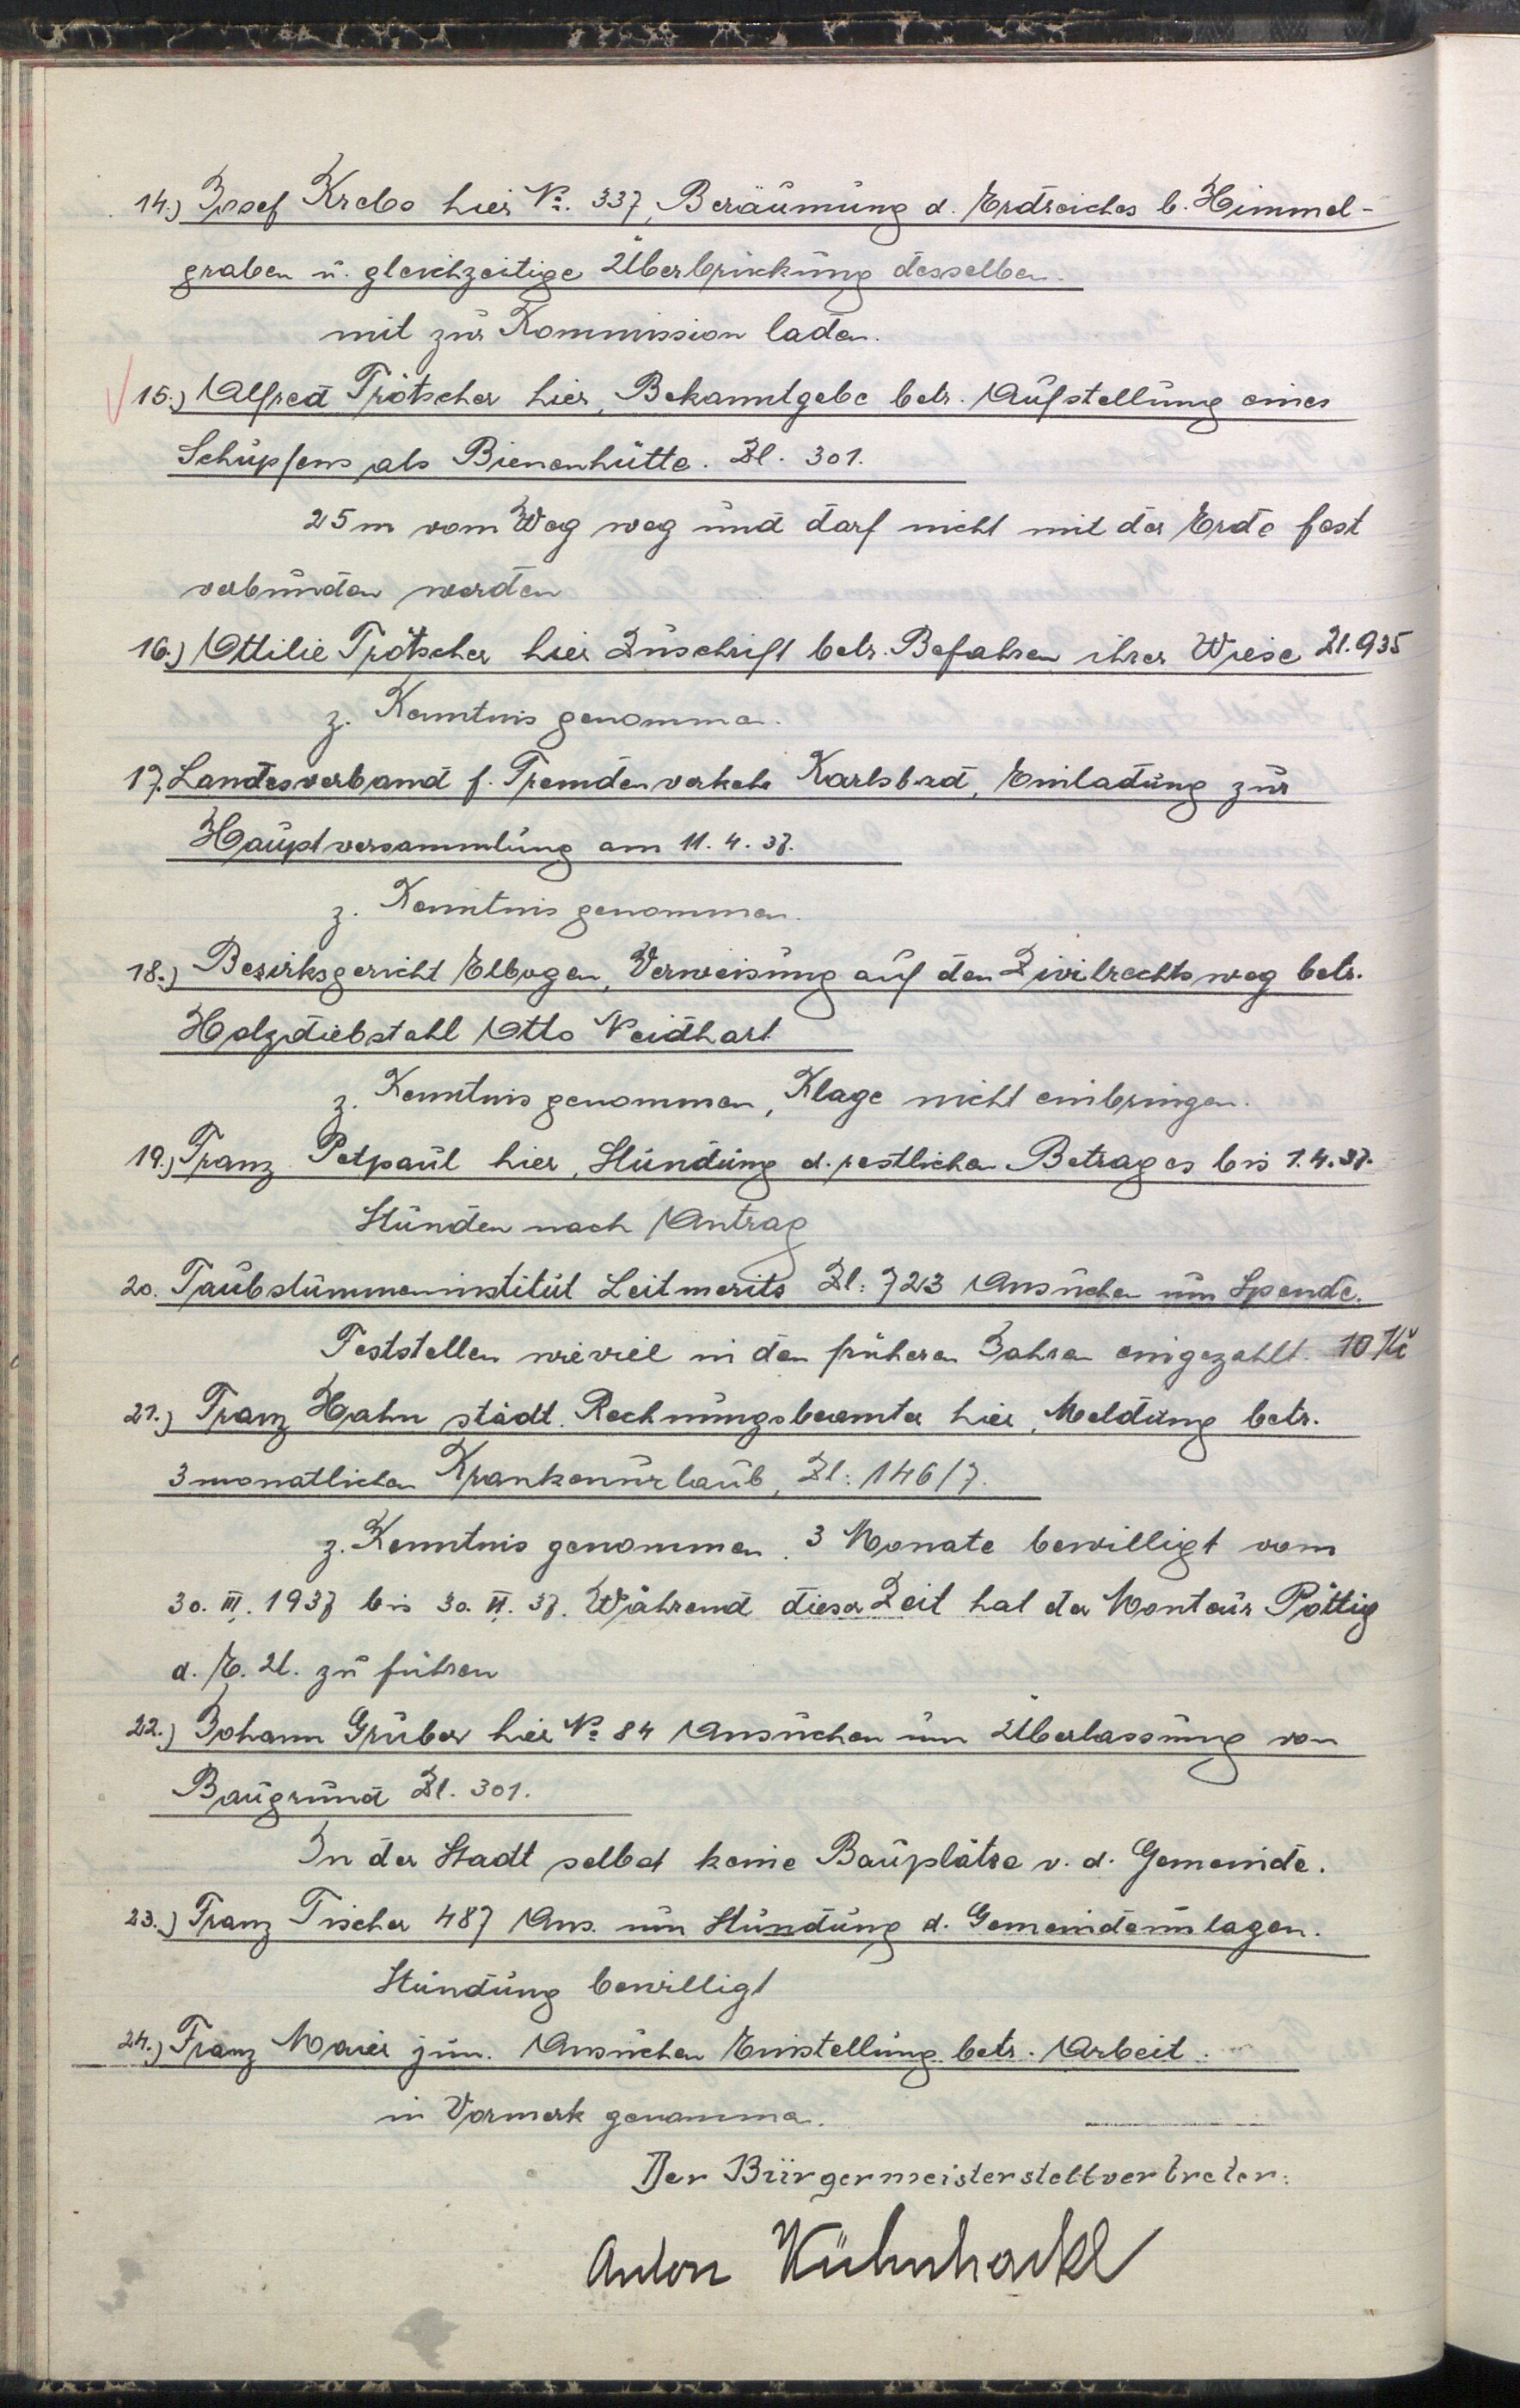 14.) Josef Krebs hier No. 337, Beräumung d. Erdreiches b. Himmel-
graben u. gleichzeitige Überbrückung desselben.
mit zur Kommission laden.
15.) Alfred Trötscher hier, Bekanntgabe betr. Aufstellung eines
Schupfens als Bienenhütte. Zl. 301.
25 m vom Weg weg und darf nicht mit der Erde fest
verbunden werden
16.) Ottilie Trötscher hier Zuschrift betr. Befahren ihrer Wiese Zl. 935
z. Kenntnis genommen.
17. Landesverband f. Fremdenverkehr Karlsbad, Einladung zur
Hauptversammlung am 11. 4. 37.
z. Kenntnis genommen.
18.) Bezirksgericht Elbogen, Verweisung auf den Zivilrechtsweg betr.
Holzdiebstahl Otto Neidhart
z. Kenntnis genommen, Klage nicht einbringen.
19.) Franz Petpaul hier, Stundung d. restlichen Betrages bis 1. 4. 37.
Stunden nach Antrag
20. Taubstummeninstitut Leitmerits Zl: 723 Ansuchen um Spende.
Feststellen wieviel in den früheren Jahren eingezahlt. 10 Kč
21.) Franz Hahn städt. Rechnungsbeamter hier, Meldung betr.
3 monatlichen Krankenurlaub, Zl: 146/7.
z. Kenntnis genommen. 3 Monate bewilligt vom
30. III. 1937 bis 30. VI. 37. Während dieser Zeit hat der Monteur Pöttig
d. E. Zl. zu führen
22.) Johann Gruber hier No 84 Ansuchen um Überlassung von
Baugrund Zl. 301.
In der Stadt selbst keine Bauplätze v. d. Gemeinde.
23.) Franz Tischer 487 Ans. um Stundung d. Gemeindeumlagen.
Stundung bewilligt
24.) Franz Maier jun. Ansuchen Einstellung betr. Arbeit.
in Vormerk genommen.
Der Bürgermeisterstellvertreter:
Anton Kühnhackl